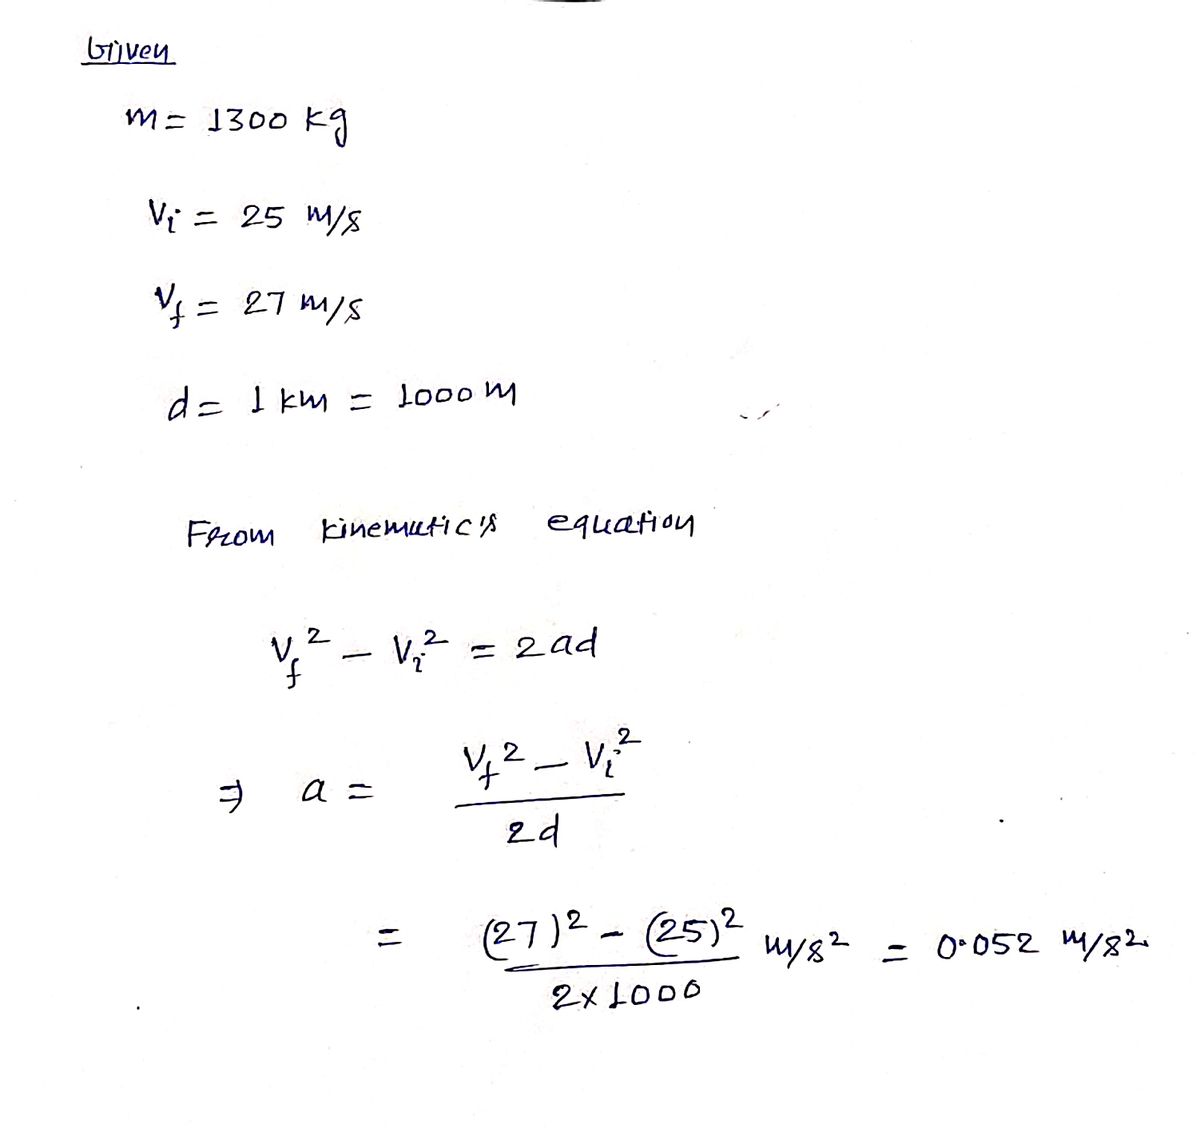 Given
m = 1300 kg
Vi = 25 m/s
Vf = 27 m/s
d = 1 km = 1000 m
From kinematic's equation
Vf² − Vi² = 2ad
⇒ a = (Vf² − Vi²) / 2d
= ((27)² − (25)²) / (2×1000) m/s² = 0.052 m/s².